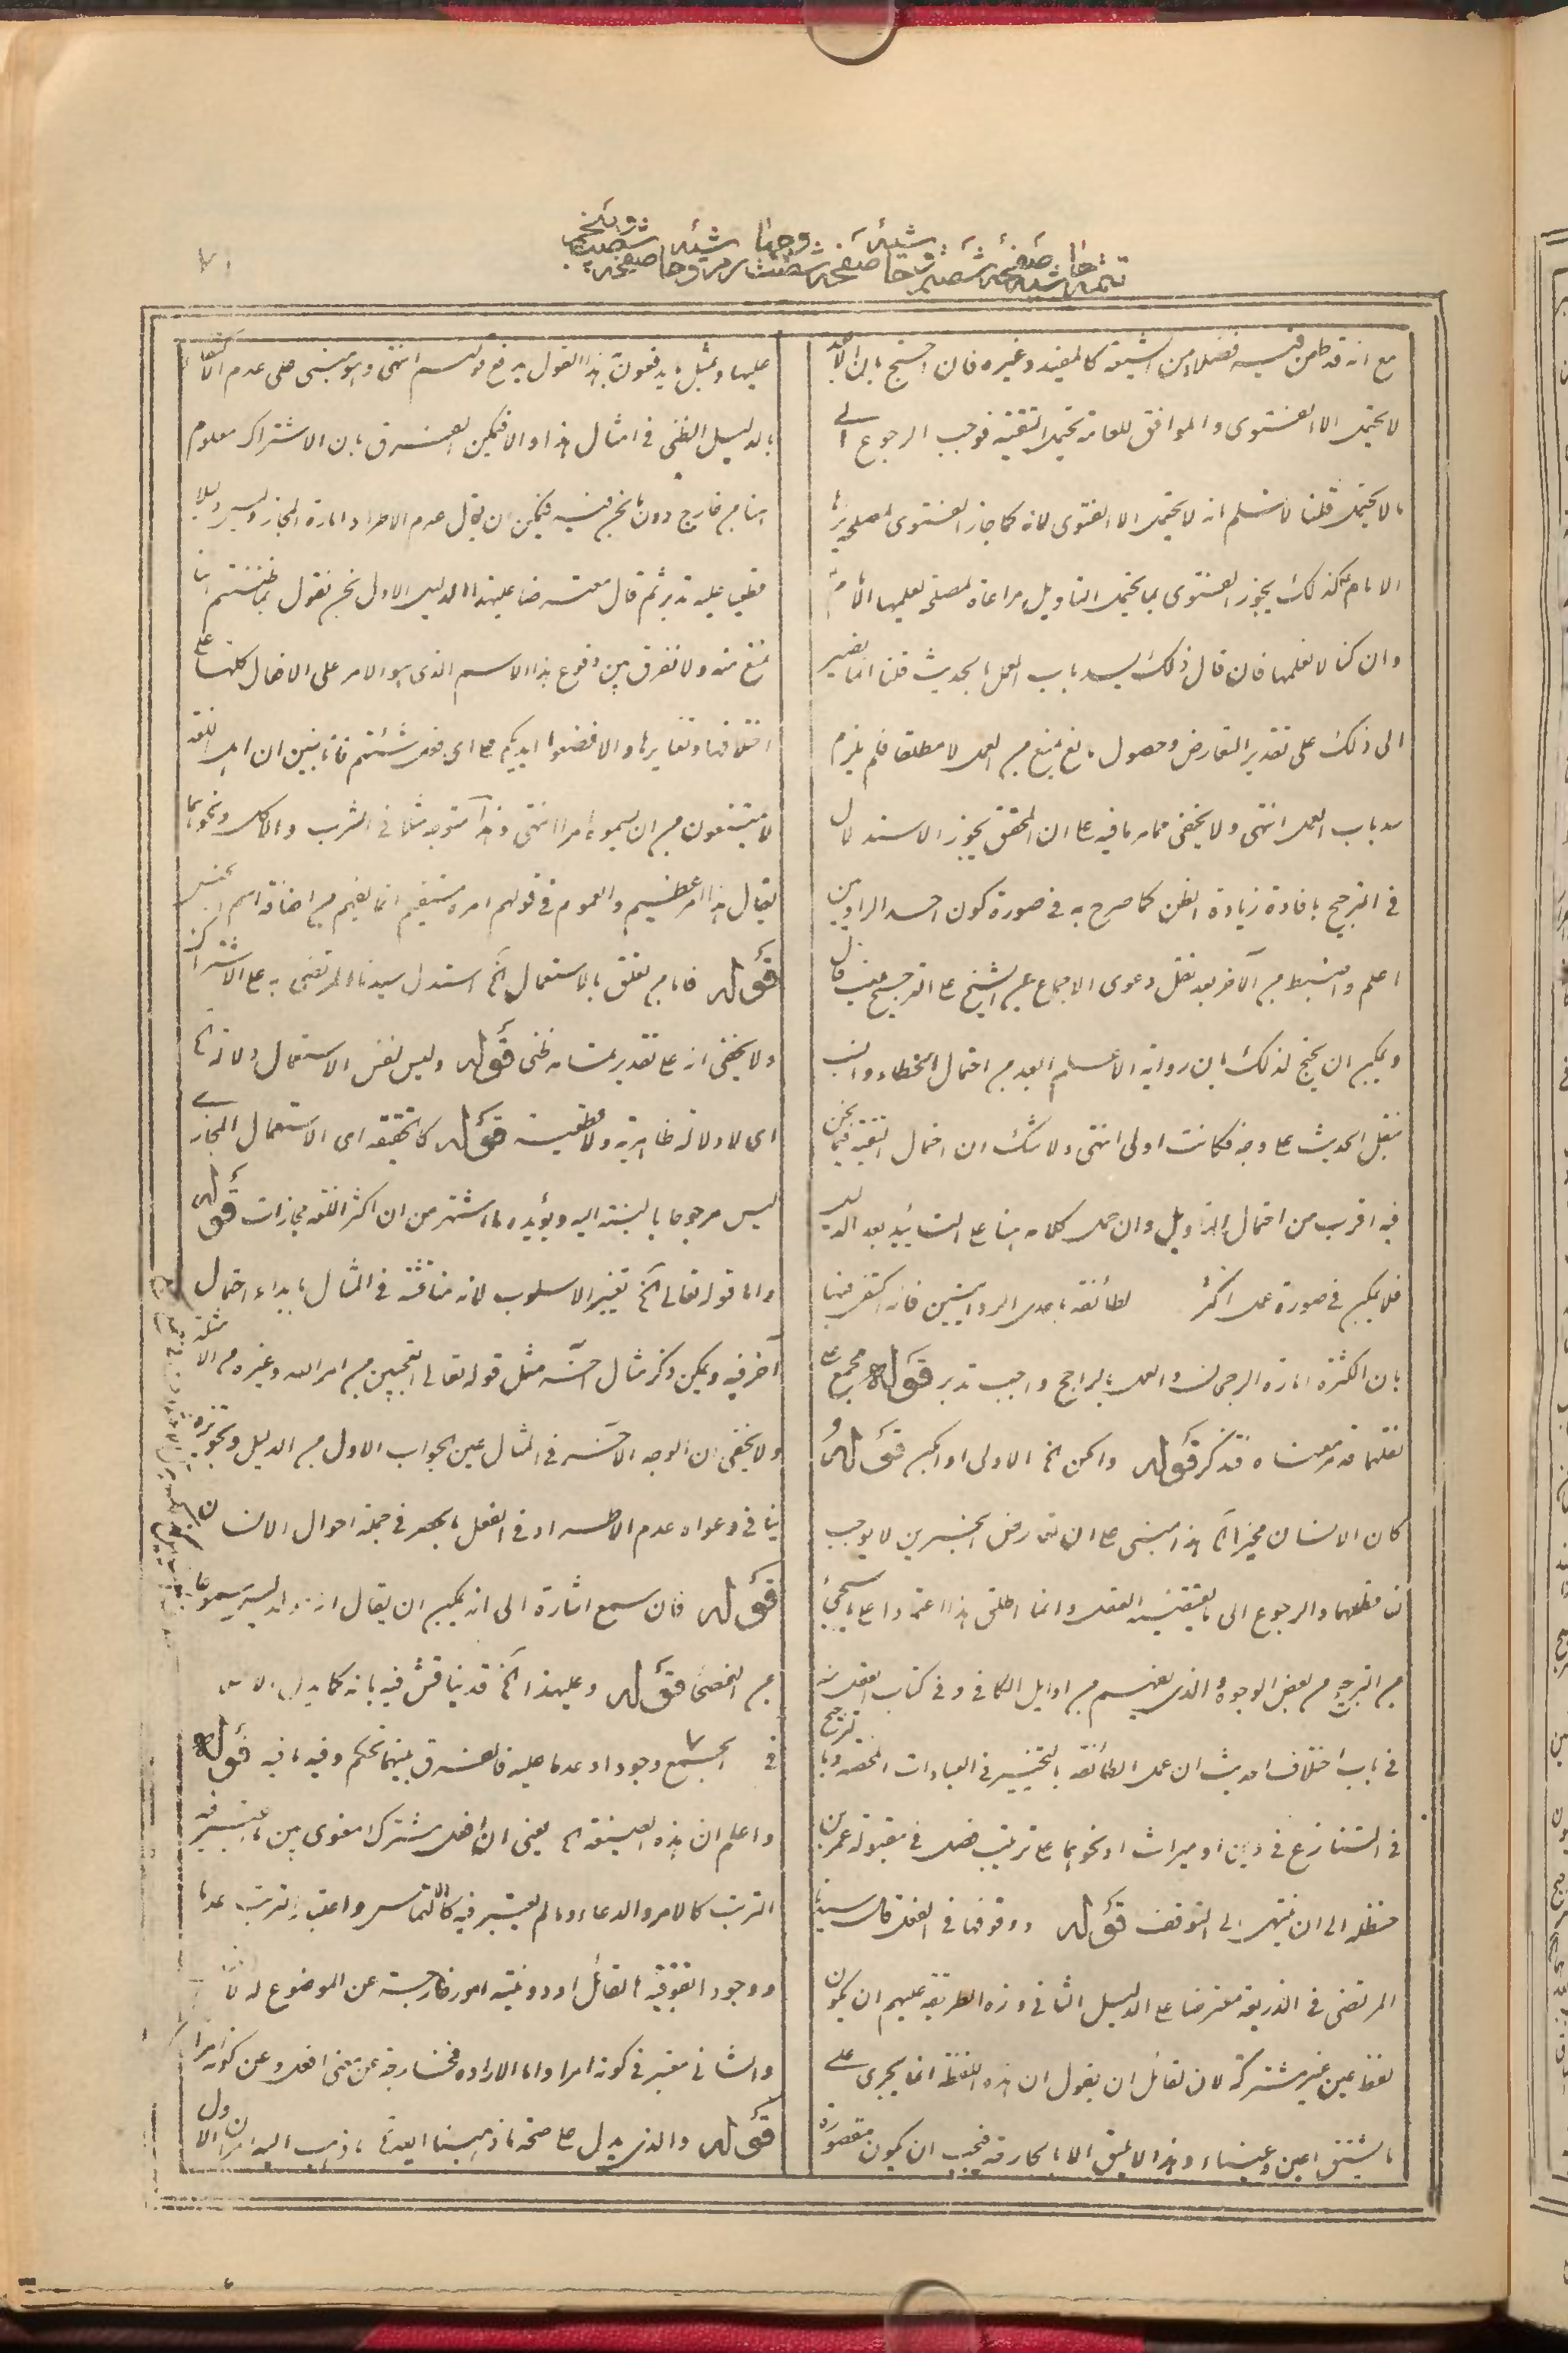 ٧١
تتمه حاشيه صفحه شصتم وحاشيه صفحه شصت وحاشيه صفحه شصت
مع انه قد طعن فيه فضلاء من الشيعة كالمفيد وغيره فان احتج بان الابعد
لا يحتمل الا الفتوى والموافق للعامة يحتمل التقية فوجب الرجوع الى
ما لا يحتمل قلنا لا نسلم انه لا يحتمل الا الفتوى لانه كما جاز الفتوى لمصلحة يراها
الامام ع كذلك يجوز الفتوى بما يحتمل التاويل مراعاة لمصلحة يعلمها الامام
وان كنا لا نعلمها فان قال ذلك يسد باب العمل بالحديث قلنا انما نصير
الى ذلك على تقدير التعارض وحصول مانع يمنع من العمل لا مطلقا فلم يلزم
سد باب العمل انتهى ولا يخفى مما مر ما فيه على ان المحقق يجوز الاستدلال
في الترجيح بافادة زيادة الظن كما صرح به في صورة كون احد الراويين
اعلم واضبط من الآخر بعد نقل دعوى الاجماع عن الشيخ على الترجيح حيث قال
ويمكن ان يحتج لذلك بان رواية الاعلم ابعد من احتمال الخطاء وانسب
بنقل الحديث على وجهه فكانت اولى انتهى ولا شك ان احتمال التقية فيما نحن
فيه اقرب من احتمال التاويل وان حمل كلامه هنا على التاييد بعد الدليل
فلا يمكن في صورة عمل اكثر لطائفة باحدى الروايتين فانه اكتفى فيها
بان الكثرة امارة الرجحان والعمل بالراجح واجب تدبر قوله مجمع على
نقلهما قد مر معناه فتذكر قوله وامكن الخ الاولى او امكن قوله
كان الانسان مخيرا الخ هذا مبنى على ان تعارض الخبرين لا يوجب
تساقطهما والرجوع الى ما يقتضيه العقل وانما اطلق هذا اعتمادا على ما سيجئ
من الترجيح من بعض الوجوه والذى يفهم من اوايل الكافى وفي كتاب العقل منه
في باب اختلاف الحديث ان عمل الطائفة بالتخيير في العبادات المحضة وبالترجيح
في التنازع في دين او ميراث او نحوهما على ترتيب فصل في مقبولة عمر بن
حنظلة الى ان ينتهى الى التوقف قوله ووقوفها في الفعل قال سيدنا
المرتضى في الذريعة معترضا على الدليل الثاني وهذه الطريقة عليهم ان يكون
لفظ عين غير مشتركة لان لقائل ان يقول ان هذه اللفظة انما يجرى على
ما يشتق اعين وعيناء وهذا لا يليق الا بالجارحة فيجب ان يكون مقصورة
عليها وبمثل ما يدفعون به هذا القول يدفع قولهم انتهى وهو مبنى على عدم الاكتفاء
بالدليل الظنى في امثال هذا والا فيمكن الفرق بان الاشتراك معلوم
هنا من خارج دون ما نحن فيه فيمكن ان يقال عدم الاطراد امارة المجاز وليس دليلا
قطعيا عليه تدبر ثم قال معترضا عليهذا الدليل الاول نحن نقول بما ظننتم انا
نمنع منه ولا نفرق بين وقوع هذا الاسم الذى هو الامر على الافعال كلها على
اختلافها وتغايرها والا فضعوا ايديكم على اى فعل شئتم فانا نبين ان اهل اللغة
لا يمتنعون من ان يسموه امرا انتهى وهذا متوجه مثلا في الشرب والاكل ونحوهما
يقال هذا امر عظيم والعموم في قولهم امره مستقيم انما يفهم من اضافة اسم الجنس
قوله فاما من تعلق بالاستعمال الخ استدل سيدنا المرتضى به على الاشتراك
ولا يخفى انه على تقدير تمامه ظنى قوله وليس نفس الاستعمال دلالة الخ
اى لا دلالة ظاهرية ولا قطعية قوله كالحقيقة اى الاستعمال المجازى
ليس مرجوحا بالنسبة اليه ويؤيده ما اشتهر من ان اكثر اللغة مجازات قوله
واما قوله تعالى الخ تغيير الاسلوب لانه مناقشة في المثال بابداء احتمال
آخر فيه ويمكن ذكر مثال احسنه مثل قوله تعالى اتعجبين من امر الله وغيره من الامثلة
ولا يخفى ان الوجه الاخر في المثال عين الجواب الاول من الدليل وتجويزه
ينافي دعواه عدم الاطراد في الفعل بالحصر في جملة احوال الانسان
قوله فان سمع اشارة الى انه يمكن ان يقال انه مولد ليس مسموعا
من الفصحى قوله وعليهذا الخ قد يناقش فيه بانه كما يدل
في الجميع وجودا وعدما عليه فالفرق بينهما تحكم وفيه ما فيه قوله
واعلم ان هذه الصيغة الخ يعنى ان افعل مشترك معنوى بين ما يعتبر فيه
الترتب كالامر والدعاء وما لم يعتبر فيه كالالتماس واعتبار الترتب عدما
ووجود افوقية القائل او دونيته امور خارجة عن الموضوع له
والثانى معتبر في كونه امرا واما الارادة فخارجة عن معنى افعل وعن كونه امرا
قوله والذى يدل على صحة ما ذهبنا اليه الخ ما ذهب اليه امران الاول